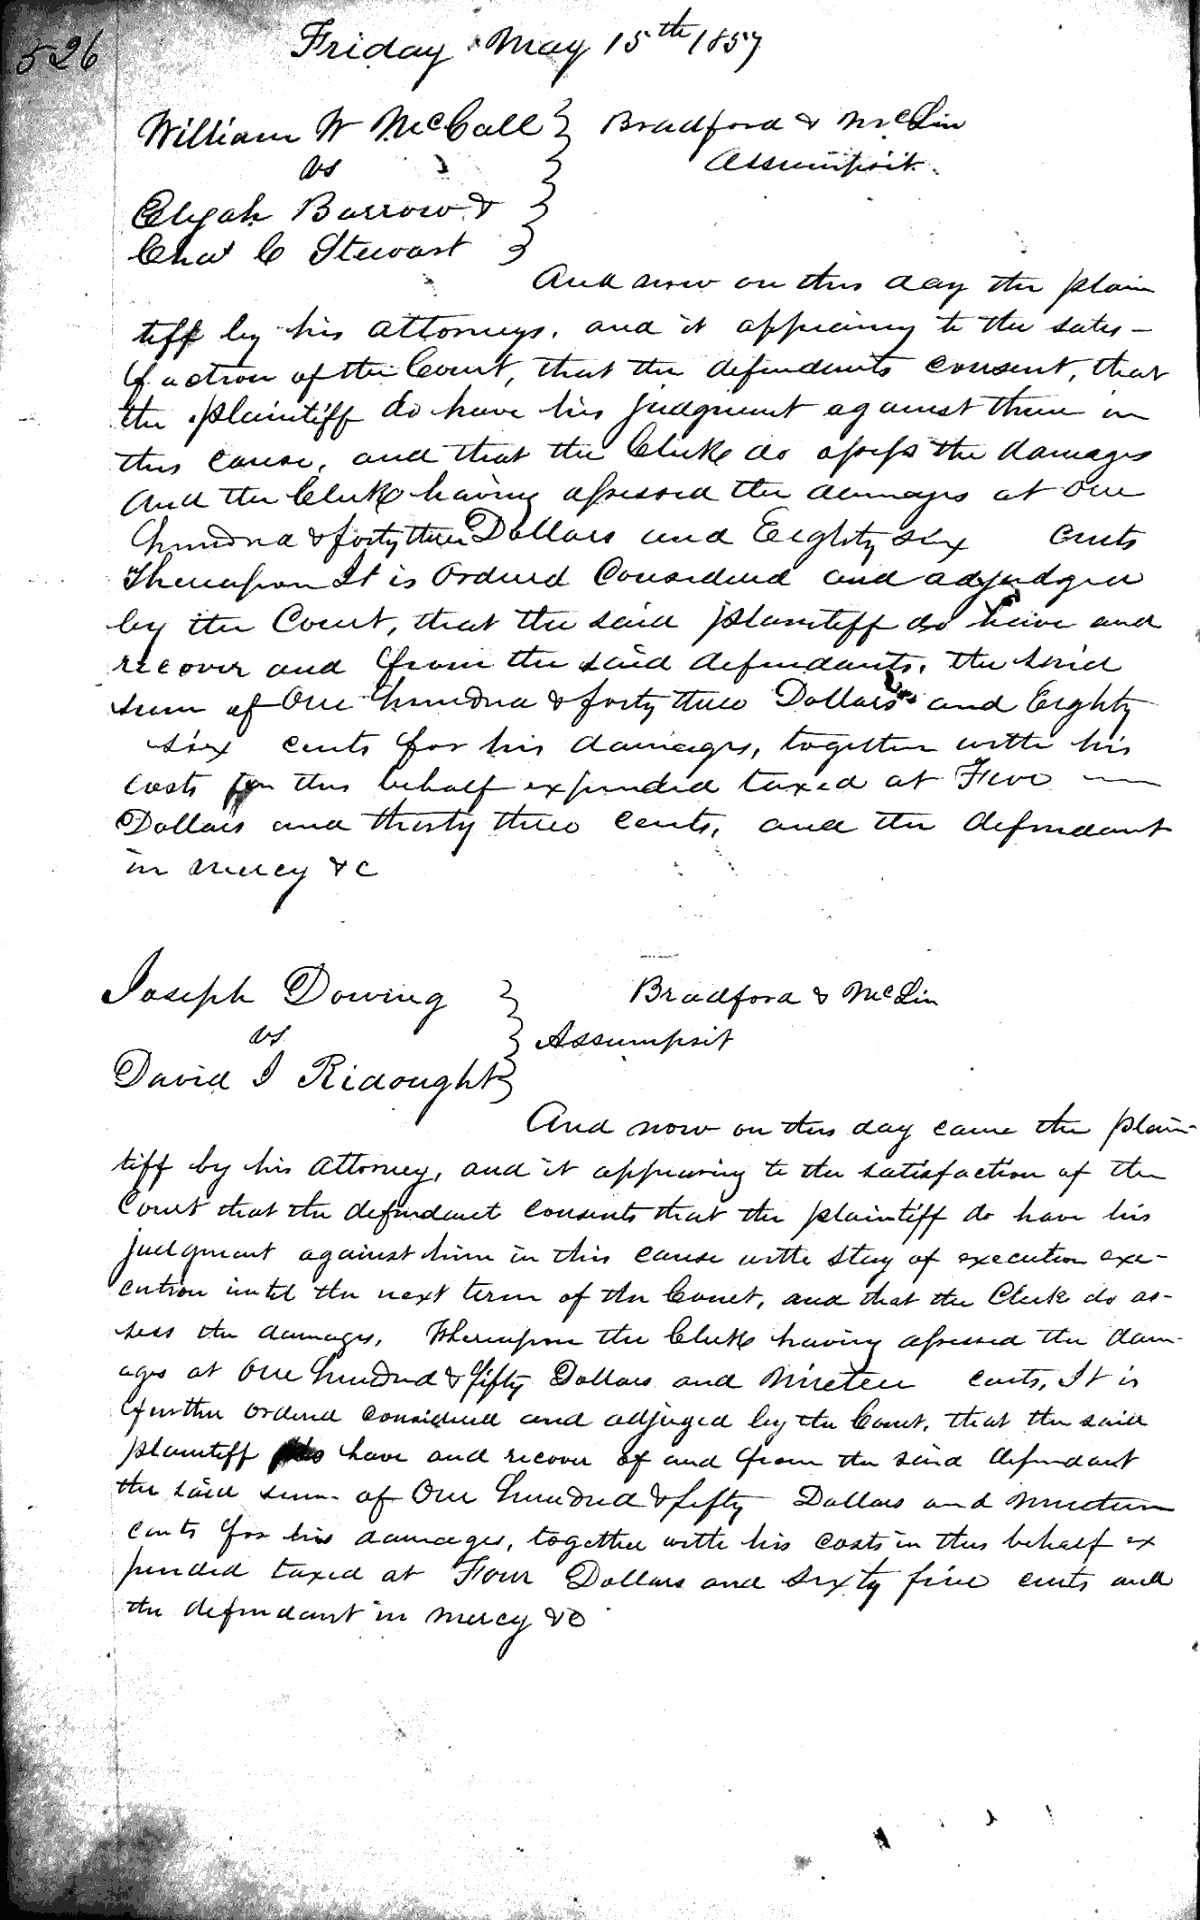 526
Friday May 15th 1857
William W McCall } Bradford & McLin
vs Assumpsit.
Elijah Barrow &
Chas C Stewart
And now on this day the plain
tiff by his attorneys, and it appearing to the satis-
faction of the Court, that the defendants consent, that
the plaintiff do have his judgment against them in
this cause, and that the Clerk do assess the damages
And the Clerk having assessed the damages at One
hundred & forty three Dollars and Eighty six cents
Thereupon It is Ordered Considered and adjudged
by the Court, that the said plaintiff do have and
recover and from the said defendants, the said
sum of One hundred & forty three Dollars and Eighty
six cents for his damages, together with his
costs in this behalf expended taxed at Five
Dollars and thirty three cents, and the defendant
in mercy &c
Joseph Dowing } Bradford & McLin
vs Assumpsit
David I Ridought
And now on this day came the plain-
tiff by his attorney, and it appearing to the satisfaction of the
Court that the defendant consents that the plaintiff do have his
judgment against him in this cause with stay of execution exe-
cution until the next term of the Court, and that the Clerk do as-
sess the damages, Whereupon the Clerk having assessed the dam-
ages at One hundred & fifty Dollars and Nineteen cents, It is
further Ordered considered and adjuged by the Court, that the said
plaintiff do have and recover of and from the said defendant
the said sum of One hundred & fifty Dollars and Nineteen
cents for his damages, together with his costs in this behalf ex
pended taxed at Four Dollars and Sixty five cents and
the defendant in mercy &c